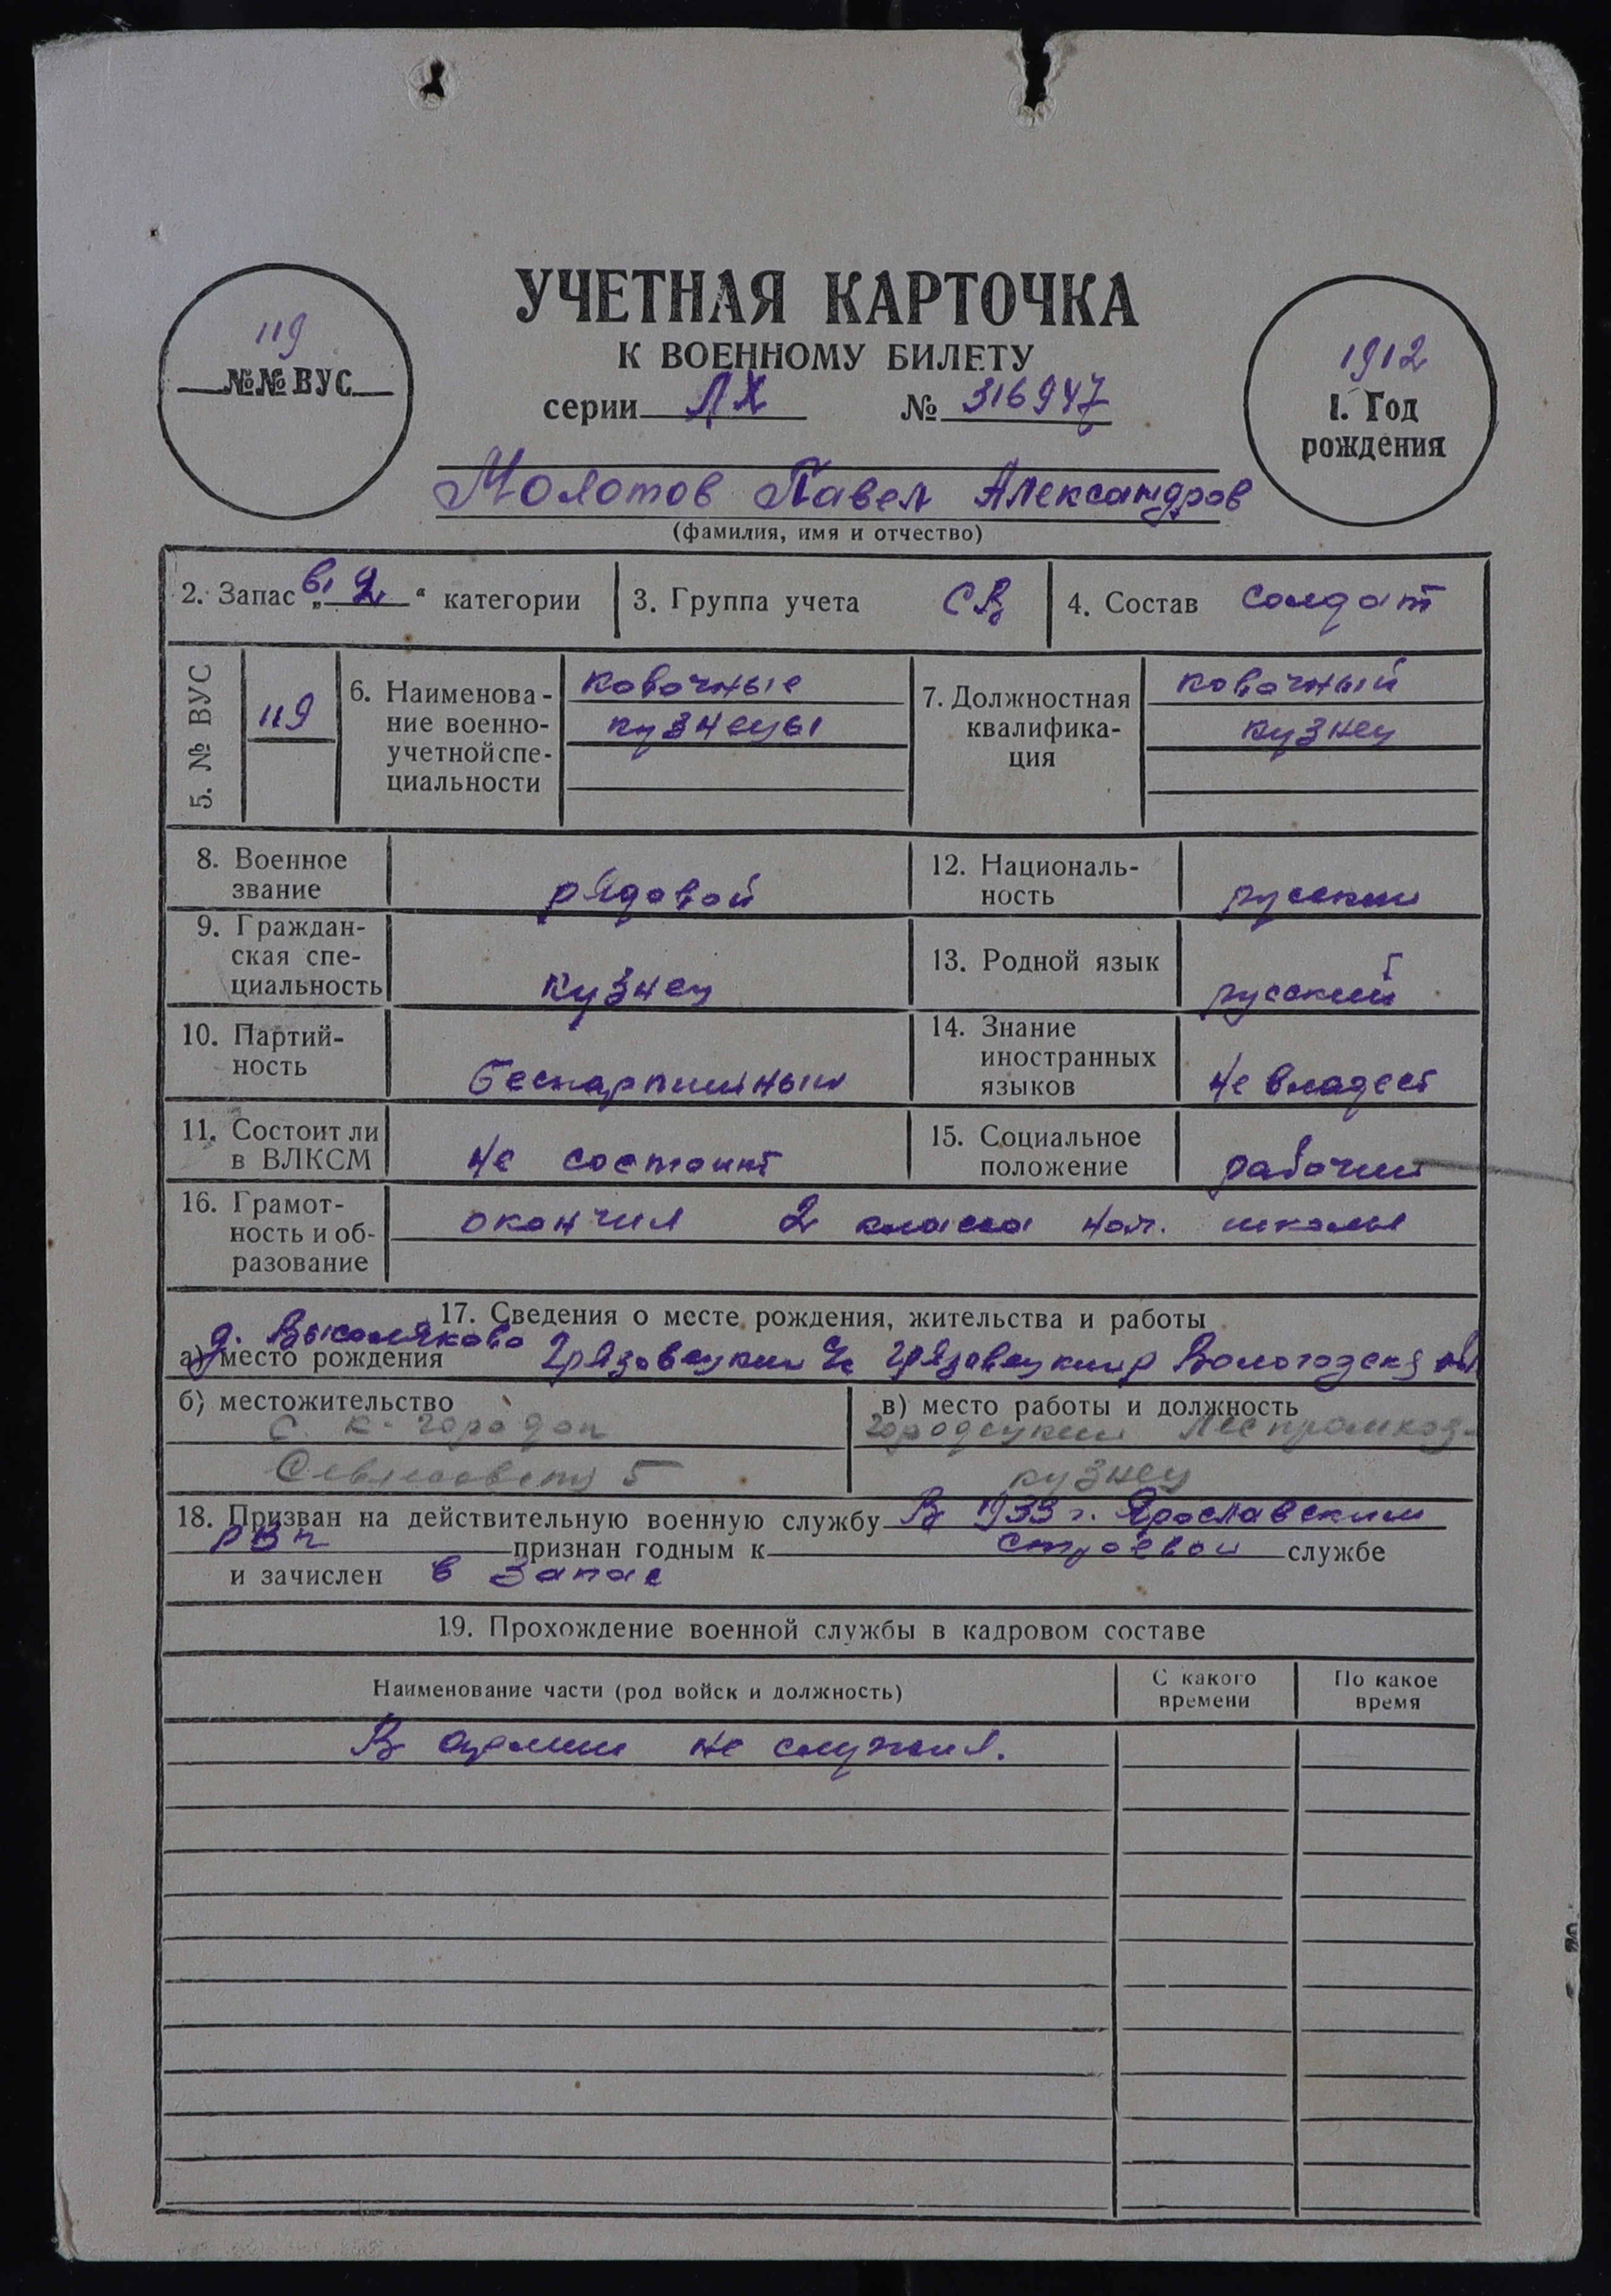 119
№№ ВУС
УЧЕТНАЯ КАРТОЧКА
К ВОЕННОМУ БИЛЕТУ
серии ЛХ № 316947
1912
1. Год
рождения
Молотов Павел Александров
(фамилия, имя и отчество)
2. Запас „2“ категории
3. Группа учета СВ
4. Состав солдат
5. № ВУС
119
6. Наименова-
ние военно-
учетной спе-
циальности
ковочные
кузнецы
7. Должностная
квалифика-
ция
ковочный
кузнец
8. Военное
звание
рядовой
12. Националь-
ность
русский
9. Граждан-
ская спе-
циальность
кузнец
13. Родной язык
русский
10. Партий-
ность
беспартийный
14. Знание
иностранных
языков
не владеет
11. Состоит ли
в ВЛКСМ
не состоит
15. Социальное
положение
рабочий
16. Грамот-
ность и об-
разование
окончил 2 класса нач. школы
17. Сведения о месте рождения, жительства и работы
д.
а) место рождения Грязовецкий Грязовецкий р Вологодск обл
б) местожительство
с. к-городок
5
в) место работы и должность
Городецкий Леспромхоз-
кузнец
18. Призван на действительную военную службу В 1933 г. Ярославским
РВК признан годным к строевой службе
и зачислен в запас
19. Прохождение военной службы в кадровом составе
Наименование части (род войск и должность)
С какого
времени
По какое
время
В армии не служил.